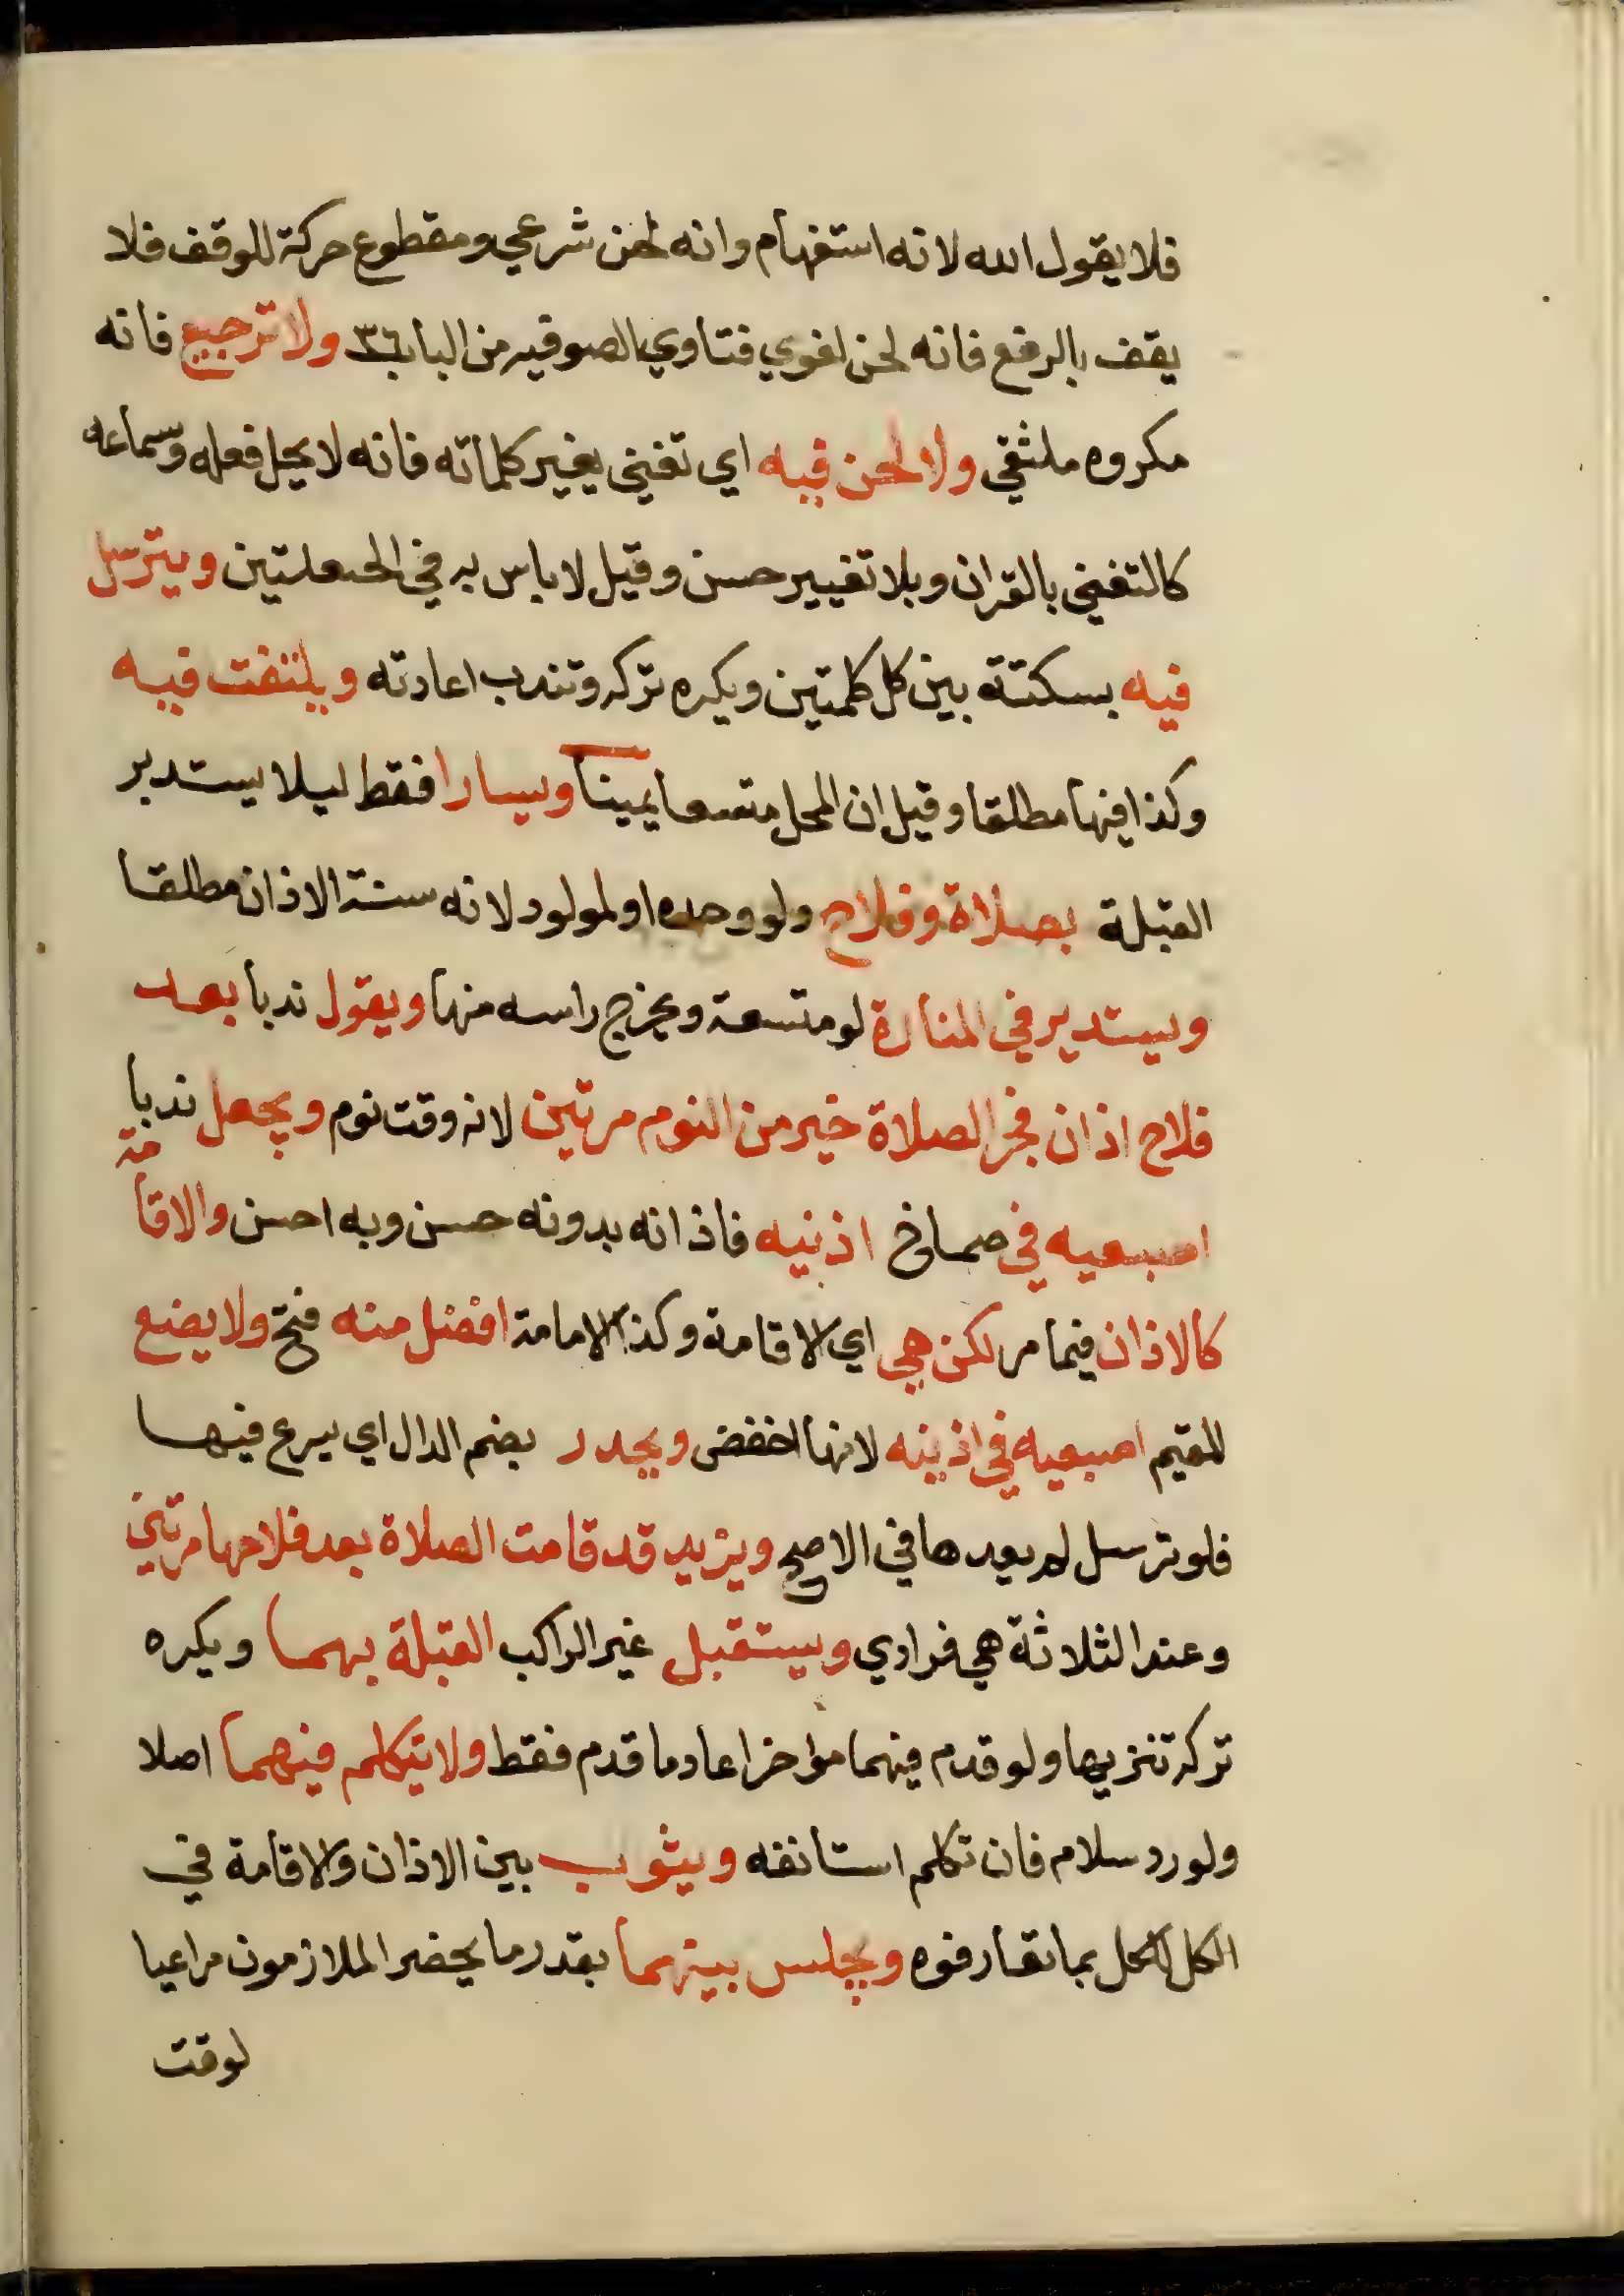 فلا يقول الله لانه استفهام وانه لحن شرعي ومقطوع حركة للوقف فلا
يقف بالرفع فانه لحن لغوي فتاوي الصوفيه من الباب ٣٦ ولا ترجيع فانه
مكروه ملتقي ولا لحن فيه اي تغني يغير كلماته فانه لا يحل فعله وسماعه
كالتغني بالقران وبلا تغيير حسن وقيل لا باس به في الحيعلتين ويترسل
فيه بسكتة بين كل كلمتين ويكره تركه وتندب اعادته ويلتفت فيه
وكذا فيها مطلقا وقيل ان المحل متسعا يمينا ويسارا فقط ليلا يستدبر
القبلة بصلاة وفلاح ولو وحده او لمولود لانه سنة الاذان مطلقا
ويستدير في المنارة لو متسعة ويخرج راسه منها ويقول ندبا بعد
فلاح اذان فجر الصلاة خير من النوم مرتين لانه وقت نوم ويجعل ندبا
اصبعيه في صماخ اذنيه فاذانه بدونه حسن وبه احسن والاقامة
كالاذان فيما مر لكن هي اي الاقامة وكذا الامامة افضل منه فتح ولا يضع
المقيم اصبعيه في اذينه لانها اخفض ويحدر بضم الدال اي يسرع فيها
فلو ترسل لم يعدها في الاصح ويزيد قد قامت الصلاة بعد فلاحها مرتين
وعند الثلاثة هي فرادي ويستقبل غير الراكب القبلة بهما ويكره
تركه تنزيها ولو قدم فيهما موخرا عاد ما قدم فقط ولا يتكلم فيهما اصلا
ولو رد سلام فان تكلم استانفه ويثوب بين الاذان والاقامة في
الكل للكل بما تعارفوه ويجلس بينهما بقدر ما يحضر الملازمون مراعيا
لوقت